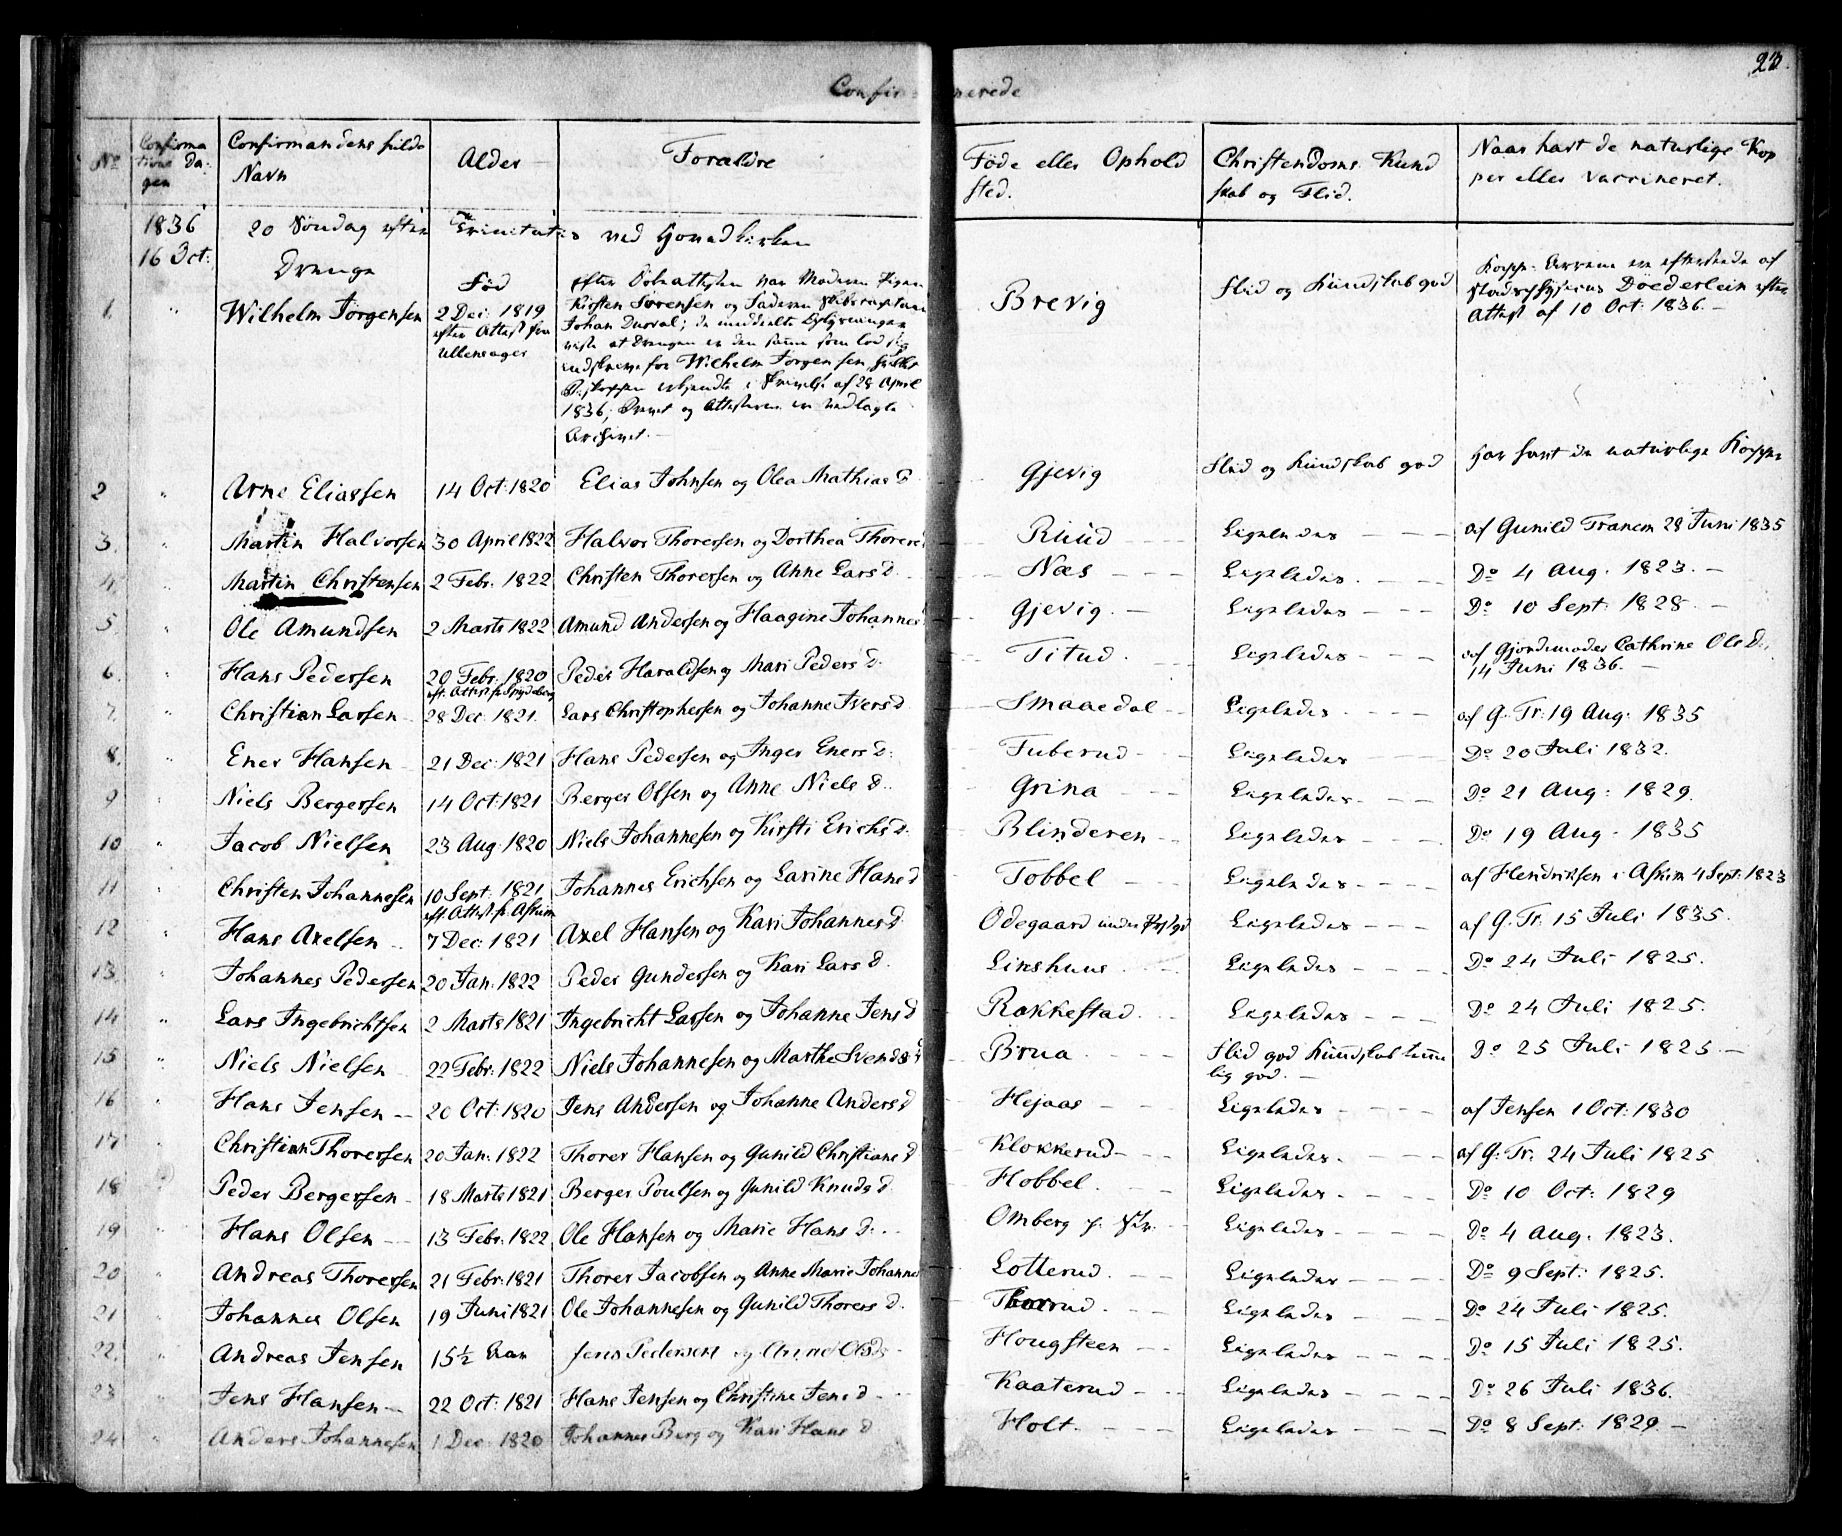 Confirmerede
23.
No | Confirmations Dagen | Confirmandens fulde Navn | Alder | Forældre | Føde eller Ophold sted. | Christendoms Kundskab og Flid. | Naar havt de naturlige Kopper eller vaccineret.
1836 16 Oct: 20 Søndag efter Trinitatis ved Hovedkirken
Drenge
Fød
1. | " | Wilhelm Jørgensen | 2 Dec: 1819 efter Attest fra Ullensager | efter Døbeattesten var Moderen Pigen Kirsten Sørensen og Faderen Skibscaptain Johan Durval; de meddeelte Oplysninger viste at Drengen er den samme som lod sig indskrive for Wilhelm Jørgensen, hvilket Biskoppen erkjendte i Skrivelse af 28 April 1836; Brevet og Attesterne er vedlagte Archivet. | Brevig | Flid og Kundskab god | Kopp-Arrene er efterseede af Doederlein efter Attest af 10 Oct: 1836.
2 | " | Arne Eliassen | 14 Oct: 1820 | Elias Johnsen og Olea Mathias D | Gjevig | Flid og Kundskab god | Har havt de naturlige Kopper
3. | " | Martin Halvorsen | 30 April 1822 | Halvor Thoressen og Dorthea Thore | Ruud | Ligeledes | af Gunild Tranem 28 Juni 1835
4. | " | Martin Christensen | 2 Febr. 1822 | Christen Thoressen og Anne Lars d. | Næs | Ligeledes | Do 4 Aug. 1823.
5. | " | Ole Amundsen | 2 Marts 1822 | Amund Andersen og Haagine Johannes | Gjevig. | Ligeledes | Do 10 Sept: 1828.
6. | " | Hans Pedersen | 20 Febr. 1820 eft. Attest fr. Spydeberg | Peder Haraldsen og Mari Peders D. | Titud. | Ligeledes | af Gjordemoder Cathrine Ols D. 14 Juni 1836.
7. | " | Christian Larsen | 28 Dec: 1821. | Lars Christophersen og Johanne Ivers d | Smaaedal | Ligeledes | af G. Tr: 19 Aug. 1835
8. | " | Ener Hansen | 21 Dec: 1821 | Hans Pedersen og Inger Eners d: | Tuberud | Ligeledes | Do 20 Juli 1832.
9 | " | Niels Bergersen | 14 Oct: 1821 | Berger Olsen og Anne Niels d. | Grina | Ligeledes | Do 21 Aug: 1829.
10 | " | Jacob Nielsen | 23 Aug: 1820 | Niels Johannesen og Kirsti Erichs d. | Blinderen | Ligeledes | Do 19 Aug. 1835
11 | " | Christen Johannesen | 10 Sept: 1821 eft. Attest fr. Askim | Johannes Erichsen og Larine Hans d | Tobbel | Ligeledes | af Hendriksen i Askim 4 Sept: 1823
12 | " | Hans Axelsen | 7 Dec: 1821 | Axel Hansen og Kari Johannes d. | Ødegaard under | Ligeledes | af G. Tr. 15 Juli 1835.
13. | " | Johannes Pedersen | 20 Jan: 1822 | Peder Gundersen og Kari Lars d. | Linshuus | Ligeledes | Do 24 Juli 1825.
14 | " | Lars Ingebrichtsen | 2 Marts 1821 | Ingebricht Larsen og Johanne Jens d | Rakkestad. | Ligeledes | Do 24 Juli 1825.
15 | " | Niels Nielsen | 22 Febr: 1822 | Niels Johannesen og Marthe Svends d | Brua | Flid god Kundskab temmelig god. | Do 25 Juli 1825.
16 | " | Hans Jensen | 20 Oct: 1820 | Jens Andersen og Johanne Anders d | Hejaas | Ligeledes | af Jensen 1 Oct: 1830
17 | " | Christian Thoressen | 20 Jan: 1822 | Thorer Hansen og Gunild Christians d | Klokkerud | Ligeledes. | af G: Tr. 24 Juli 1825
18 | Peder Bergersen | 18 Marts 1821 | Berger Poulsen og Gunild Knuds d. | Hobbel. | Ligeledes | Do 10 Oct: 1829
19 | " | Hans Olsen | 13 Febr. 1822 | Ole Hansen og Marie Hans d. | Omberg | Ligeledes | Do 4 Aug. 1823.
20 | " | Andreas Thoressen | 21 Febr: 1821 | Thorer Jacobsen og Anne Marie Johannes | Lotterud. | Ligeledes | Do 9 Sept: 1825.
21 | " | Johannes Olsen | 19 Juni 1821 | Ole Johannesen og Gunild Thorers d. | Thorrud. | Ligeledes | Do 24 Juli 1825.
22. | " | Andreas Jensen | 15½ Aar | Jens Pedersen og Anne Olsd | Hougsteen | Ligeledes | Do 15 Juli 1825.
23 | " | Jens Hansen | 22 Oct: 1821 | Hans Jensen og Christine Jens d | Kaaterud | Ligeledes | Do 26 Juli 1836.
24 | " | Anders Johannesen | 1 Dec: 1820 | Johannes Berg og Kari Hans d | Holt. | Ligeledes | Do 8 Sept: 1829